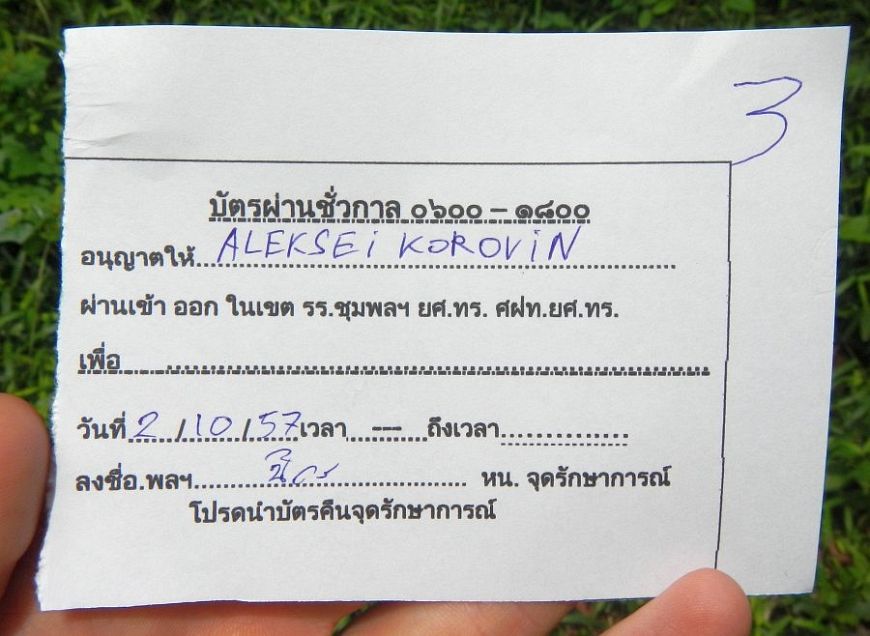 3
บัตรผ่านชั่วกาล ๐๖๐๐ – ๑๘๐๐
อนุญาตให้ ALEKSEi KOROViN
ผ่านเข้า ออก ในเขต รร.ชุมพลฯ ยศ.ทร. ศฝท.ยศ.ทร.
เพื่อ
วันที่ 2 /10 /57 เวลา --- ถึงเวลา
ลงชื่อ.พลฯ หน. จุดรักษาการณ์
โปรดนำบัตรคืนจุดรักษาการณ์